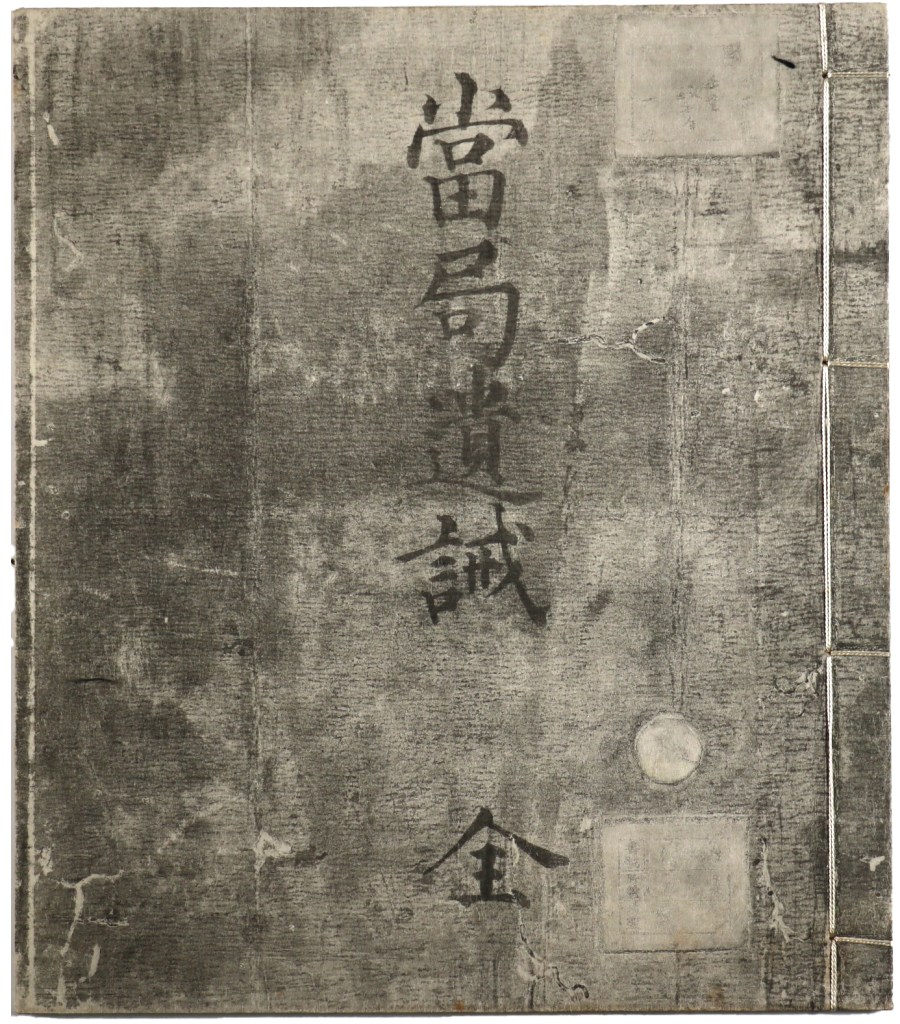 當局遺誡
全